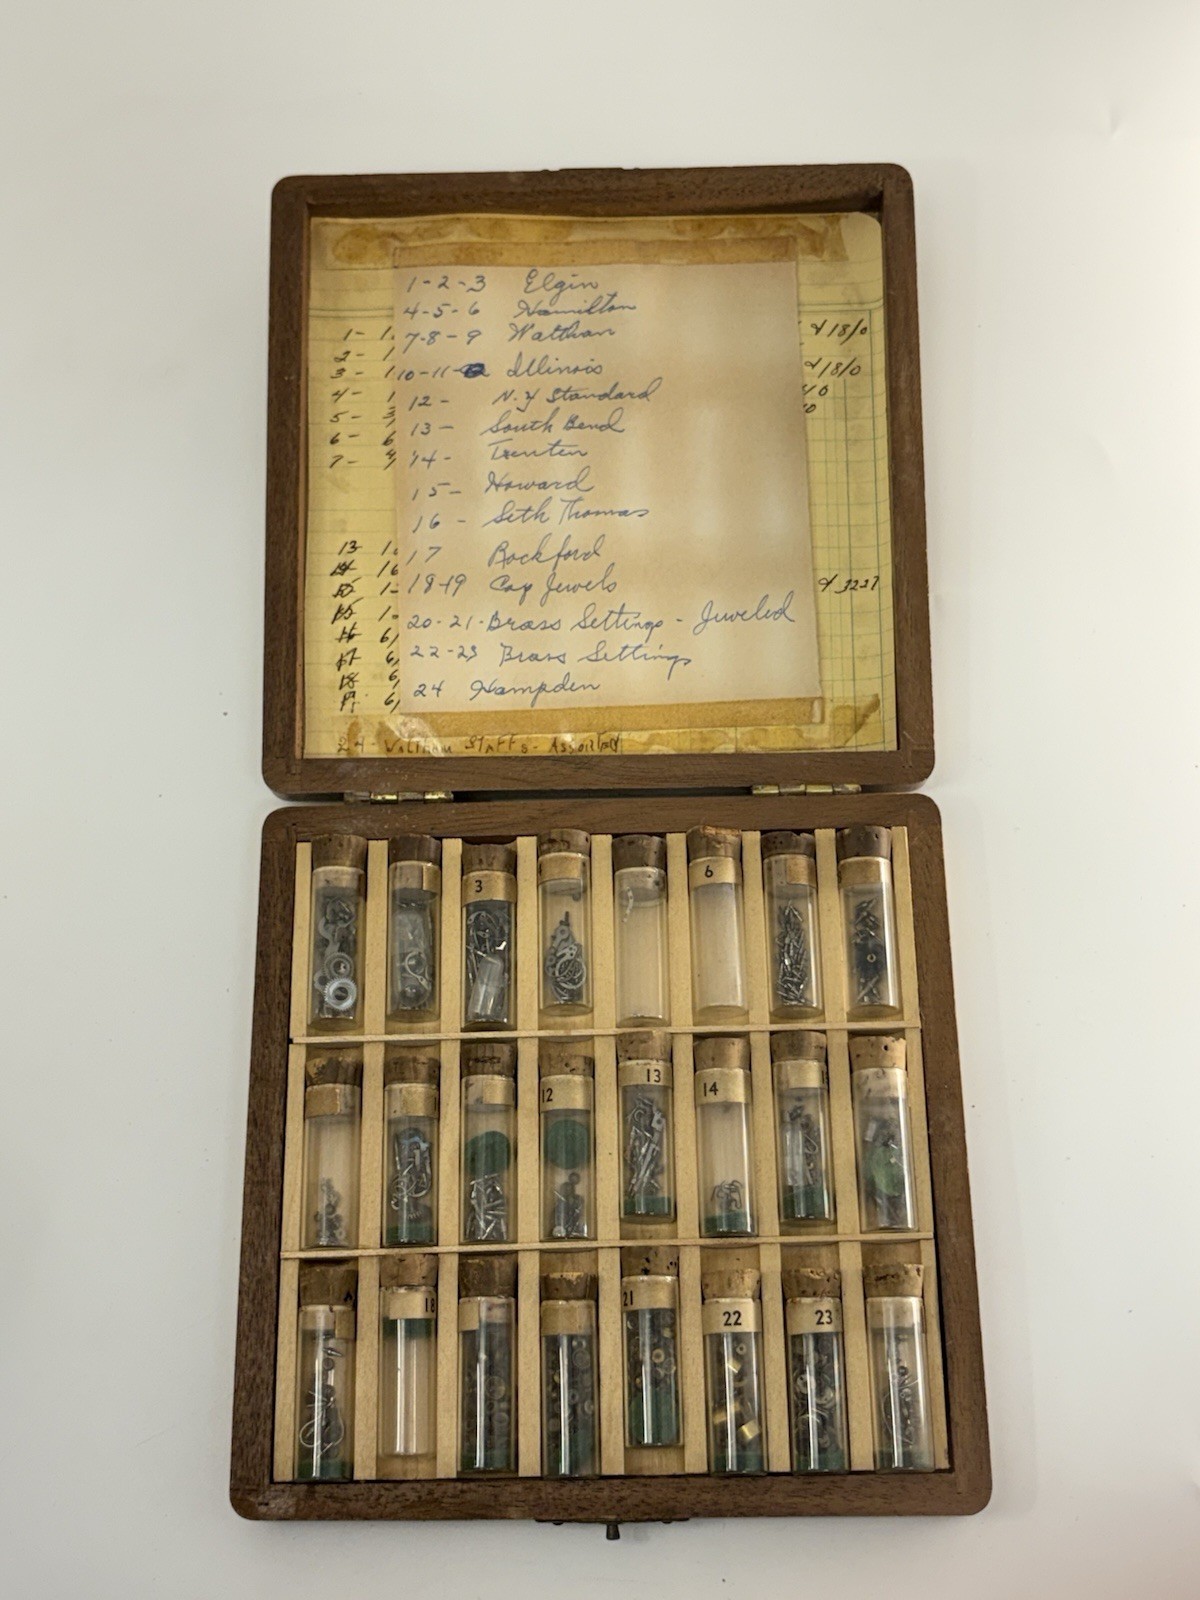 1-2-3 Elgin
4-5-6 Hamilton
7-8-9 Waltham
10-11- Illinois
12- N.Y Standard
13- South Bend
14- Trenten
15- Howard
16 - Seth Thomas
17 Rockford
18-19 Cap Jewels
20-21-Brass Settings - Jeweled
22-23 Brass Settings
24 Hampden
1- 1.
& 18/0
2- 1
3- 1
& 18/0
4- 1
5- 3
6- 6
7-
13- 1.
16
& 3227
24- Waltham Staffs- Assorted
3
6
12
13
14
18
21
22
23